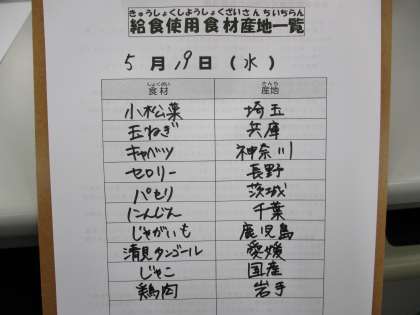 きゅうしょくしようしょくざいさんちいちらん
給食使用食材産地一覧
5月19日(水)
しょくざい さんち
食材 産地
小松菜 埼玉
玉ねぎ 兵庫
キャベツ 神奈川
セロリー 長野
パセリ 茨城
にんじん 千葉
じゃがいも 鹿児島
清見タンゴール 愛媛
じゃこ 国産
鶏肉 岩手